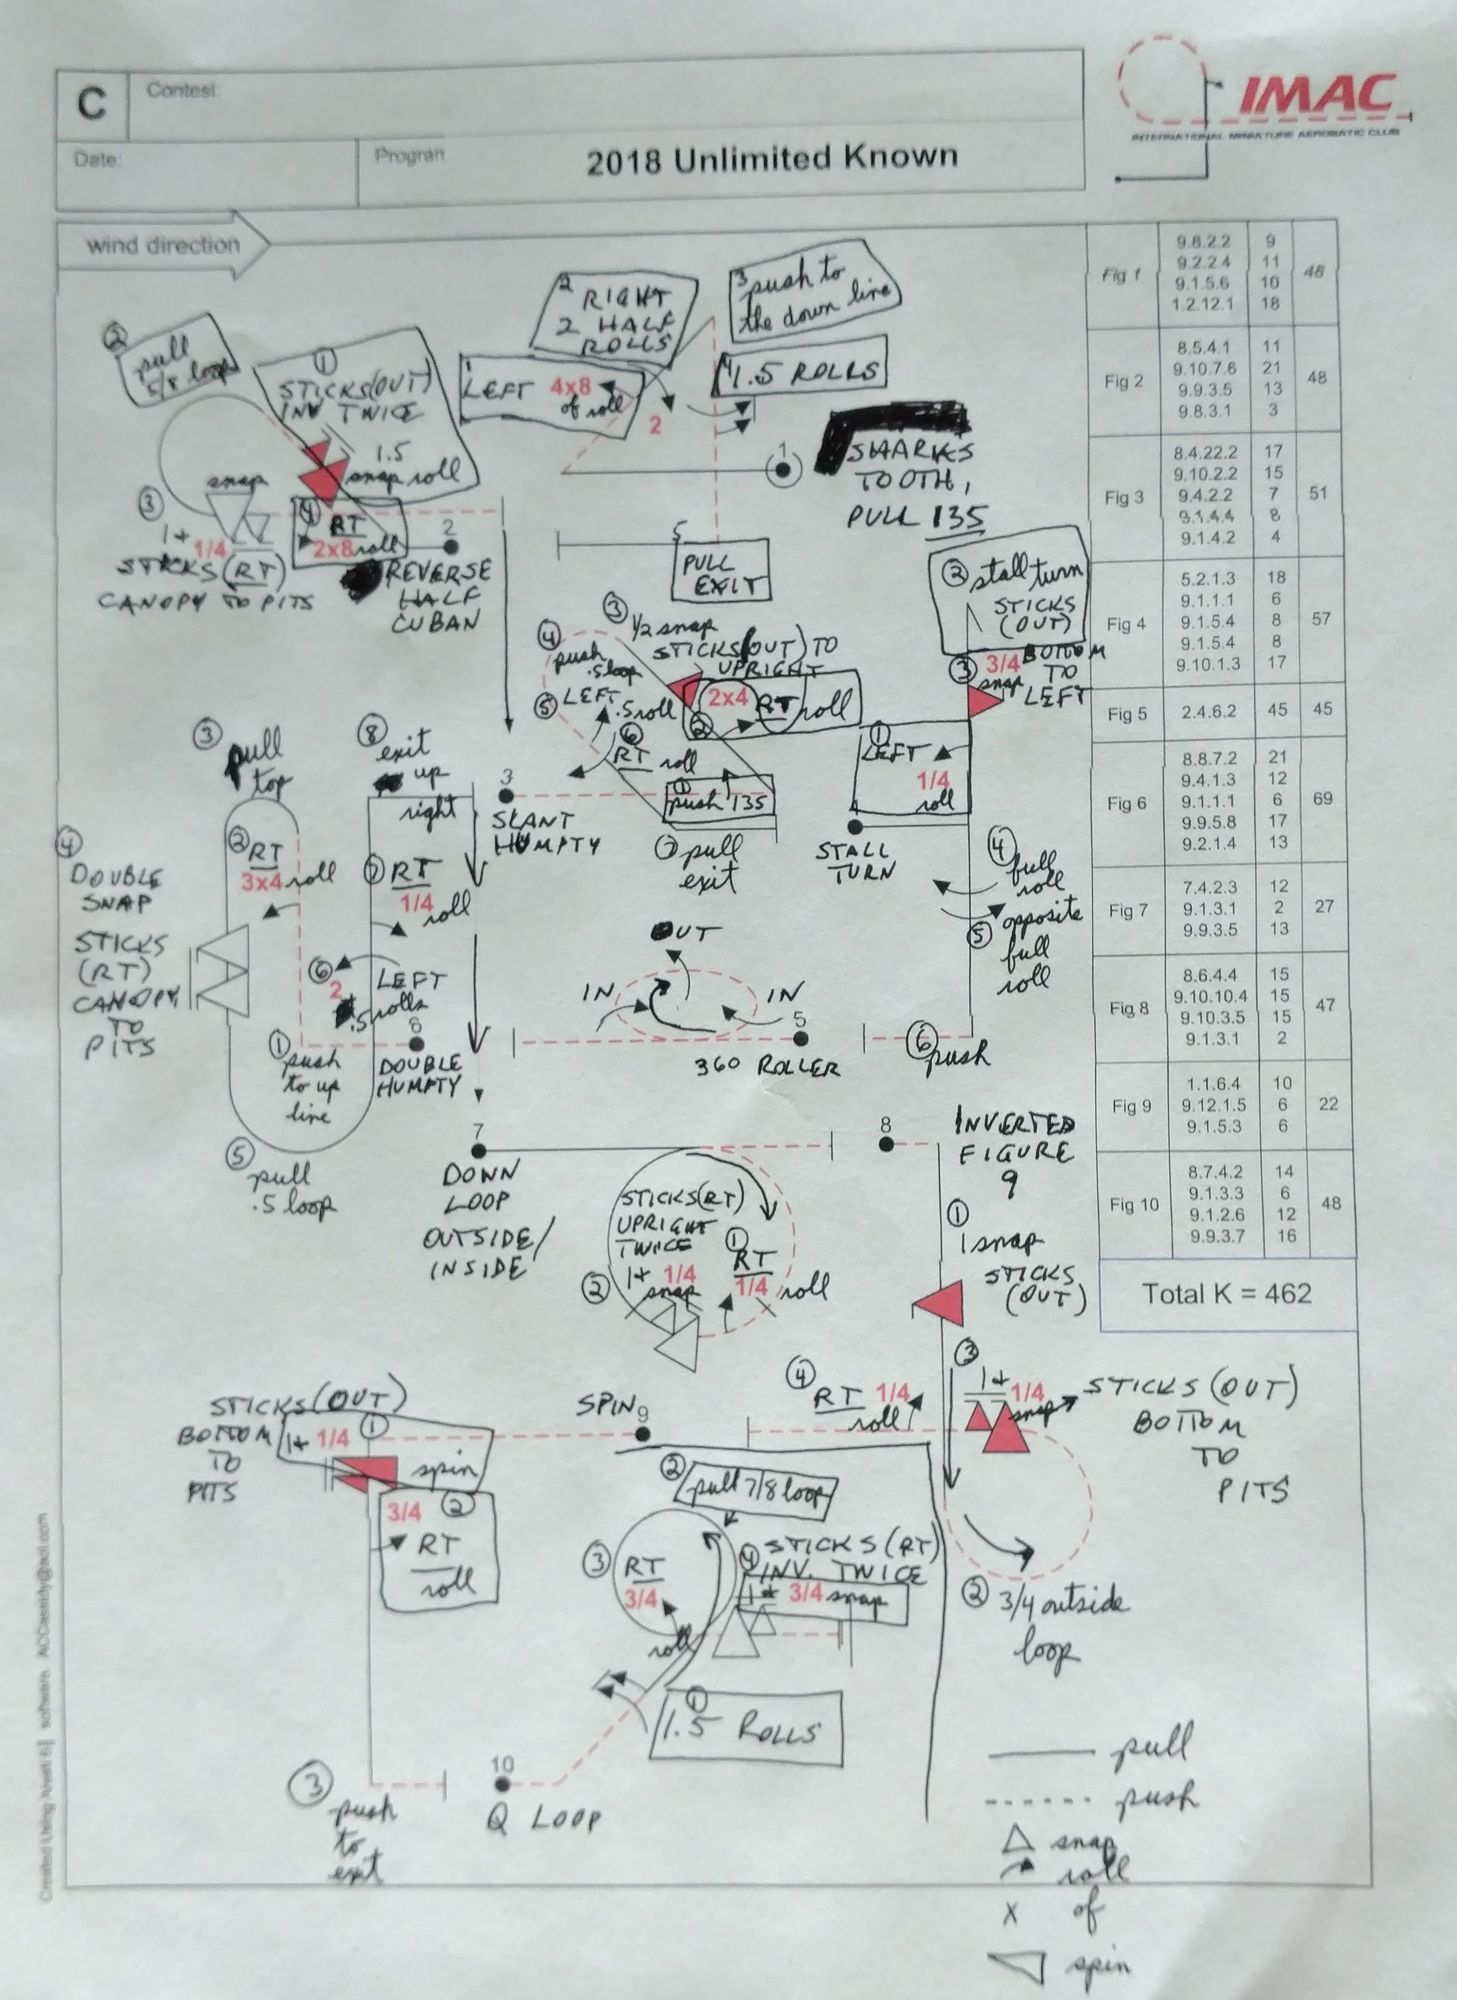 C
Contest:
Date:
Program
2018 Unlimited Known
IMAC
INTERNATIONAL MINIATURE AEROBATIC CLUB
wind direction
Fig 1
9.8.2.2 9
9.2.2.4 11
9.1.5.6 10
1.2.12.1 18
48
Fig 2
8.5.4.1 11
9.10.7.6 21
9.9.3.5 13
9.8.3.1 3
48
Fig 3
8.4.22.2 17
9.10.2.2 15
9.4.2.2 7
9.1.4.4 8
9.1.4.2 4
51
Fig 4
5.2.1.3 18
9.1.1.1 6
9.1.5.4 8
9.1.5.4 8
9.10.1.3 17
57
Fig 5
2.4.6.2 45
45
Fig 6
8.8.7.2 21
9.4.1.3 12
9.1.1.1 6
9.9.5.8 17
9.2.1.4 13
69
Fig 7
7.4.2.3 12
9.1.3.1 2
9.9.3.5 13
27
Fig 8
8.6.4.4 15
9.10.10.4 15
9.10.3.5 15
9.1.3.1 2
47
Fig 9
1.1.6.4 10
9.12.1.5 6
9.1.5.3 6
22
Fig 10
8.7.4.2 14
9.1.3.3 6
9.1.2.6 12
9.9.3.7 16
48
Total K = 462
1
LEFT 4x8
of roll
2
RIGHT
2 HALF
ROLLS
2
3 push to
the down line
4 1.5 ROLLS
5
PULL
EXIT
1
SHARKS
TOOTH,
PULL 135
2
pull
5/8 loop
1
STICKS (OUT)
INV TWICE
1.5
snap roll
snap
3
1+ 1/4
STICKS (RT)
CANOPY TO PITS
4
RT
2x8 roll
2
REVERSE
HALF
CUBAN
3
1/2 snap
STICKS (OUT) TO
UPRIGHT
4
push
.5 loop
5 LEFT
.5 roll
2x4 RT roll
2
6
RT roll
1
push 135
7 pull
exit
3
SLANT
HUMPTY
2 stall turn
STICKS
(OUT)
3 3/4
snap
BOTTOM
TO
LEFT
1
LEFT
1/4
roll
STALL
TURN
4
full
roll
5 opposite
full
roll
6 push
3
pull
top
8
exit
up
right
2 RT
3x4 roll
7 RT
1/4
roll
4
DOUBLE
SNAP
STICKS
(RT)
CANOPY
TO
PITS
6
2
LEFT
.5 rolls
1
push
to up
line
6
DOUBLE
HUMPTY
5
pull
.5 loop
OUT
IN
IN
5
360 ROLLER
7
DOWN
LOOP
OUTSIDE/
INSIDE
STICKS (RT)
UPRIGHT
TWICE
2
1+ 1/4
snap
1
RT
1/4 roll
8
INVERTED
FIGURE
9
1
1 snap
STICKS
(OUT)
3
1+ 1/4
snap
STICKS (OUT)
BOTTOM
TO
PITS
4
RT 1/4
roll
2 3/4 outside
loop
SPIN 9
STICKS (OUT)
BOTTOM
TO
PITS
1
1+ 1/4
spin
3/4 2
RT
roll
3
push
to
exit
10
Q LOOP
1
1.5 ROLLS
2
pull 7/8 loop
3 RT
3/4
roll
4 STICKS (RT)
INV. TWICE
1+ 3/4 snap
pull
push
snap
roll
X of
spin